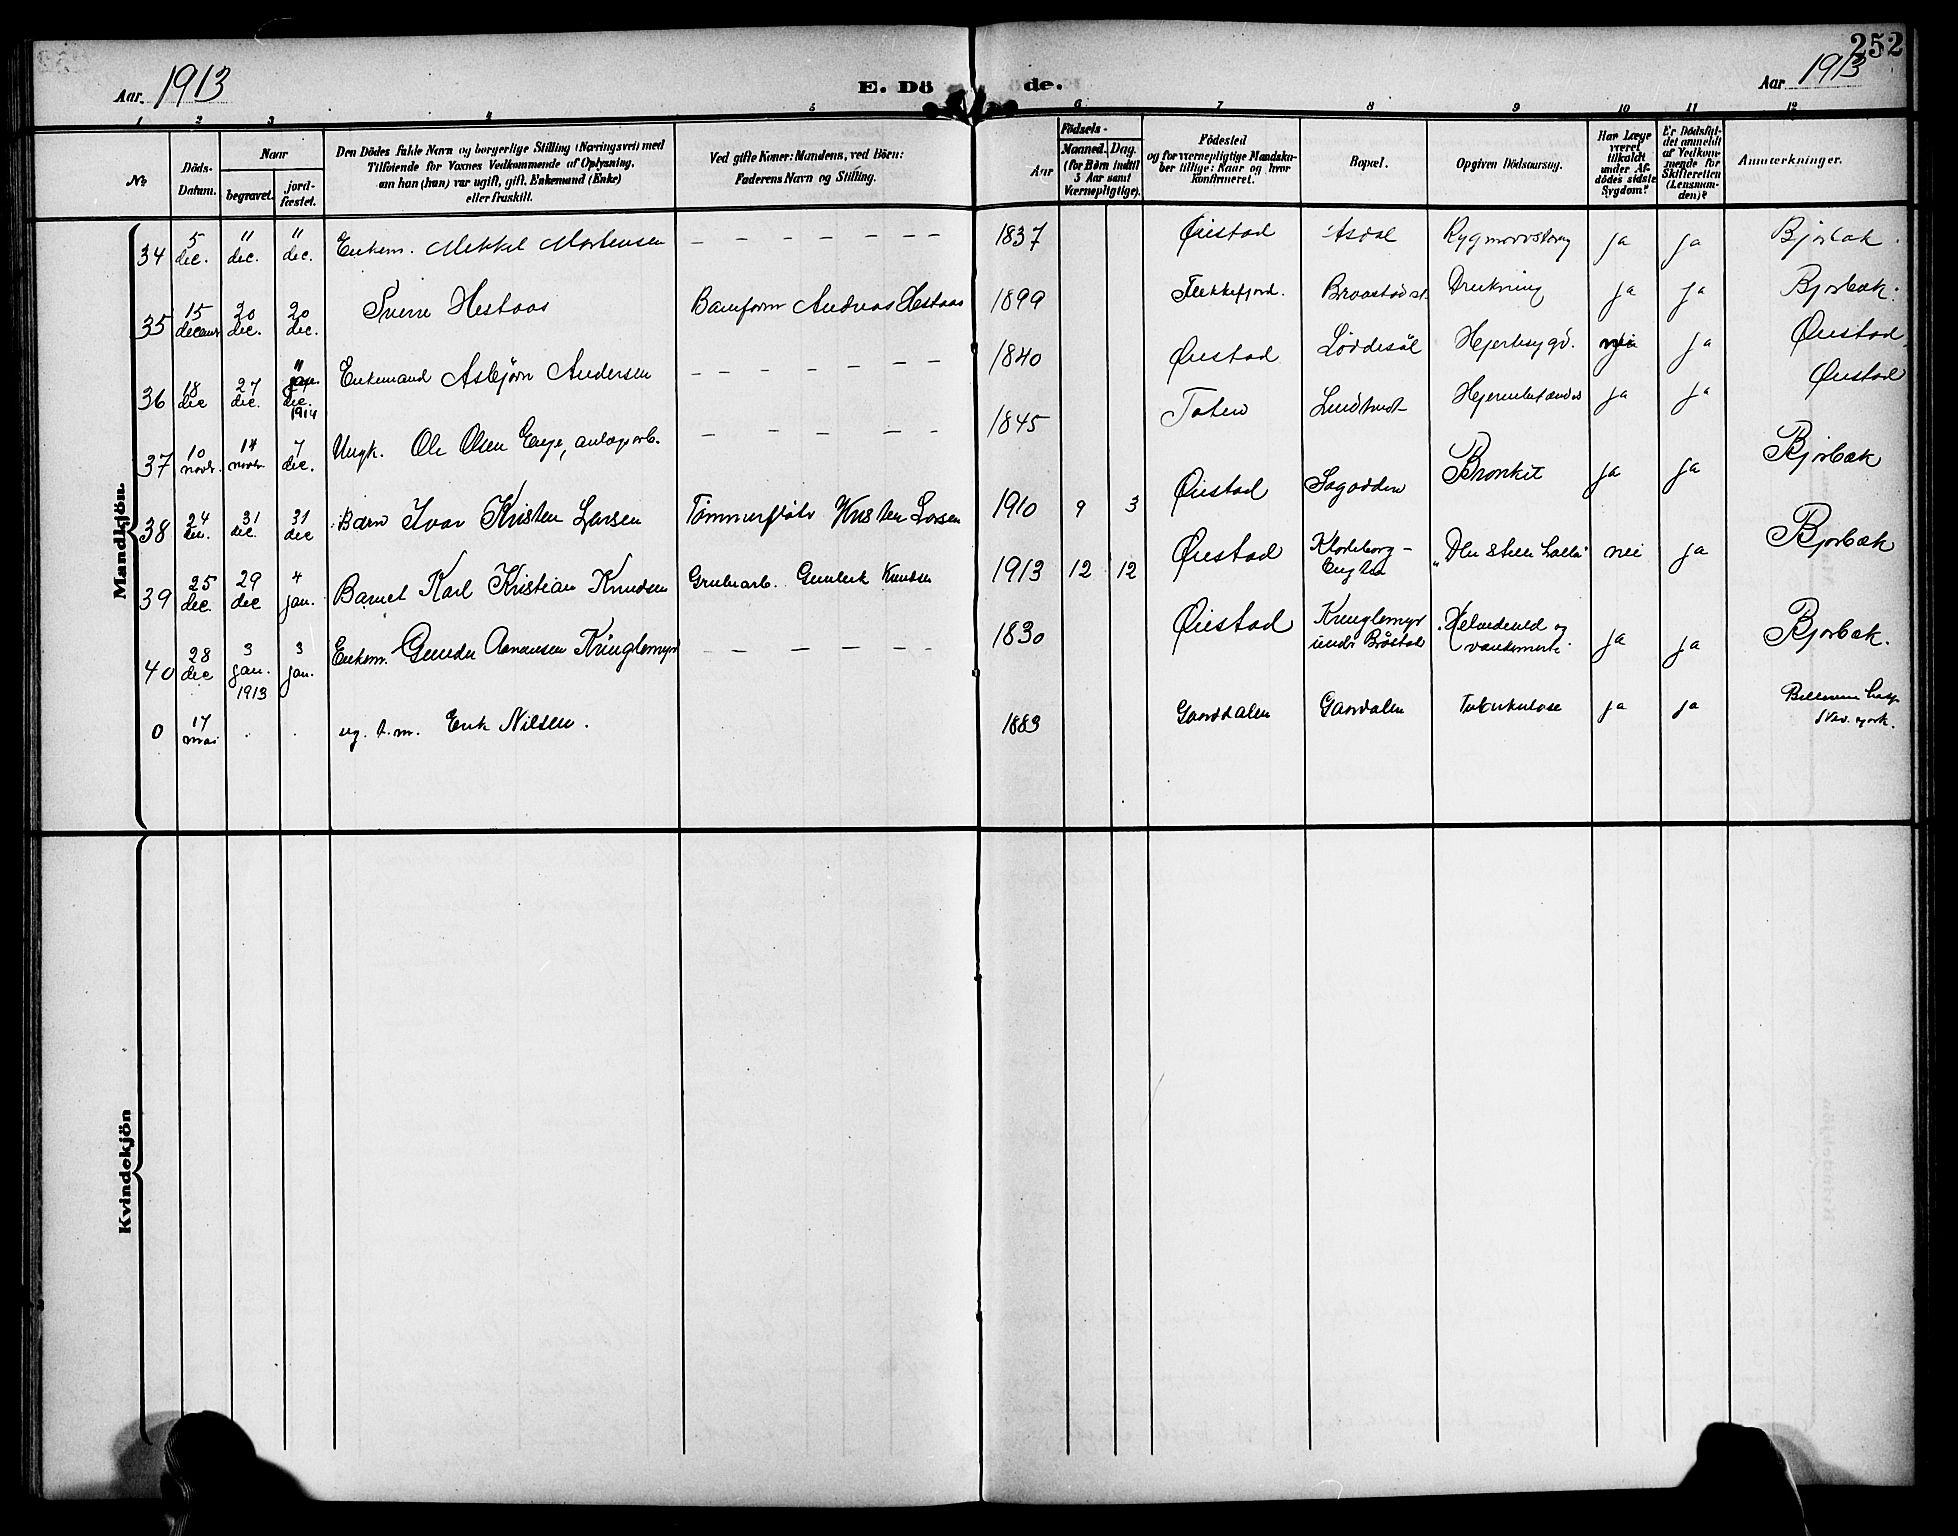 252
Aar. 1913
E. Döde.
Aar 1913
1 2 3 4 5 6 7 8 9 10 11 12
No
Döds-Datum.
Naar
begravet.
jord-fæstet.
Den Dödes fulde Navn og borgerlige Stilling (Næringsvei) med
Tilföiende for Voxnes Vedkommende af Oplysning,
om hun (han) var ugift, gift, Enkemand (Enke)
eller fraskilt.
Ved gifte Koner: Mandens, ved Börn:
Faderens Navn og Stilling.
Födsels-
Aar
Maaned. Dag.
(for Börn indtil
3 Aar samt
Værnepligtige).
Födested
og for værnepligtige Mandska-
ber tillige: Naar og hvor
konfirmeret.
Bopæl.
Opgiven Dödsaarsag.
Har Læge
været
tilkaldt
under Af-
dödes sidste
Sygdom?
Er Dödsfal-
det anmeldt
af Vedkom-
mende for
Skifteretten
(Lensman-
den)?
Anmærkninger.
Mandkjön.
34 5 dec. 11 dec. 11 dec. Enkem. Mikkel Mortensen — — — — — — 1837 Øiestad Asdal Rygmarvstæring ja ja Bjorbæk.
35 15 decbr 20 dec. 20 dec. Sverre Hestaas Baneform Andreas Hestaas 1899 Flekkefjord. Braastad st. Drukning ja ja Bjorbæk.
36 18 dec 27 dec. 11 jan. 1914 Enkemand Asbjørn Andersen — — — — — — 1840 Øiestad Løddesøl Hjertesygd. nei ja Øiestad.
37 10 novbr. 14 novbr 7 dec. Ungk. Ole Olsen Enge, anlægsarb. — — — — — 1845 Toten Lindtveit ja ja Øiestad
38 24 dec. 31 dec. 31 dec Barn Ivar Kristen Larsen Tømmerfløter Kristen Larsen 1910 9 3 Øiestad Sagodden Bronkit ja ja Bjorbæk
39 25 dec. 29 dec 4 jan. Barnet Karl Kristian Knudsen Grubearb. Gunleik Knudsen 1913 12 12 Øiestad Klodeborg- nei ja Bjorbæk
40 28 dec 3 jan. 1913 3 jan. Enkem. Gunder Aanansen Kringlemyr — — — — — — 1830 Øiestad Kringlemyr under Bråstad Helvedeild og ja ja Bjorbæk.
0 17 mai . . ug. s.m. Erik Nilsen. 1883 Gaarddalen Gaardalen Tuberkulose ja ja Bellevue hosp. New York.
Kvindekjön